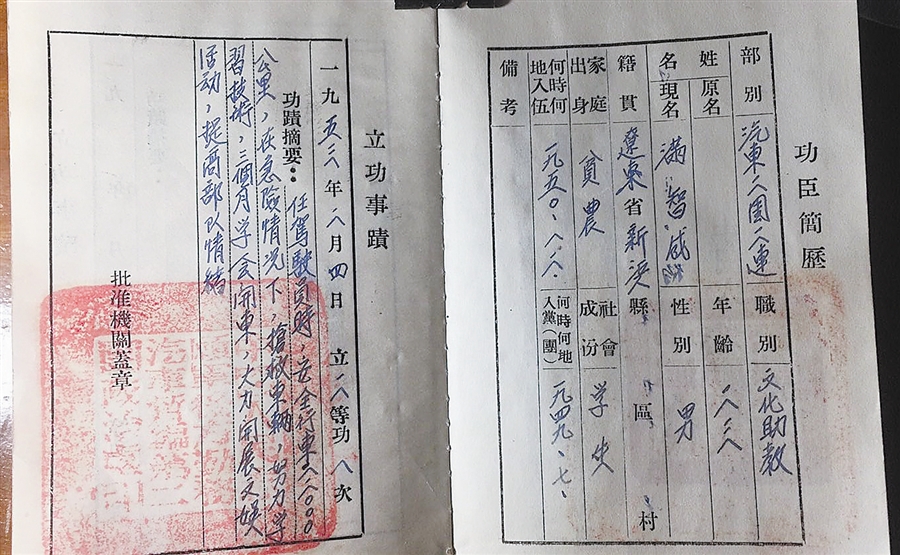 功臣簡歷
部別 汽車團連 職別 文化助教
姓名 原名 年齡
現名 滿智 性別 男
籍貫 遼東省新縣區村
家庭出身 貧農 社會成份 学生
何時何地入伍 一九五〇、 何時何地入黨(團) 一九四九、七、
備考
立功事蹟
一九五年月四日 立等功次
功蹟摘要：任駕駛員時，安全行車〇〇〇
公里，在危險情况下，搶救車輛，努力学
習技術，三個月学会開車，大力開展文娱
活动，提高部队情緒
批准機關蓋章